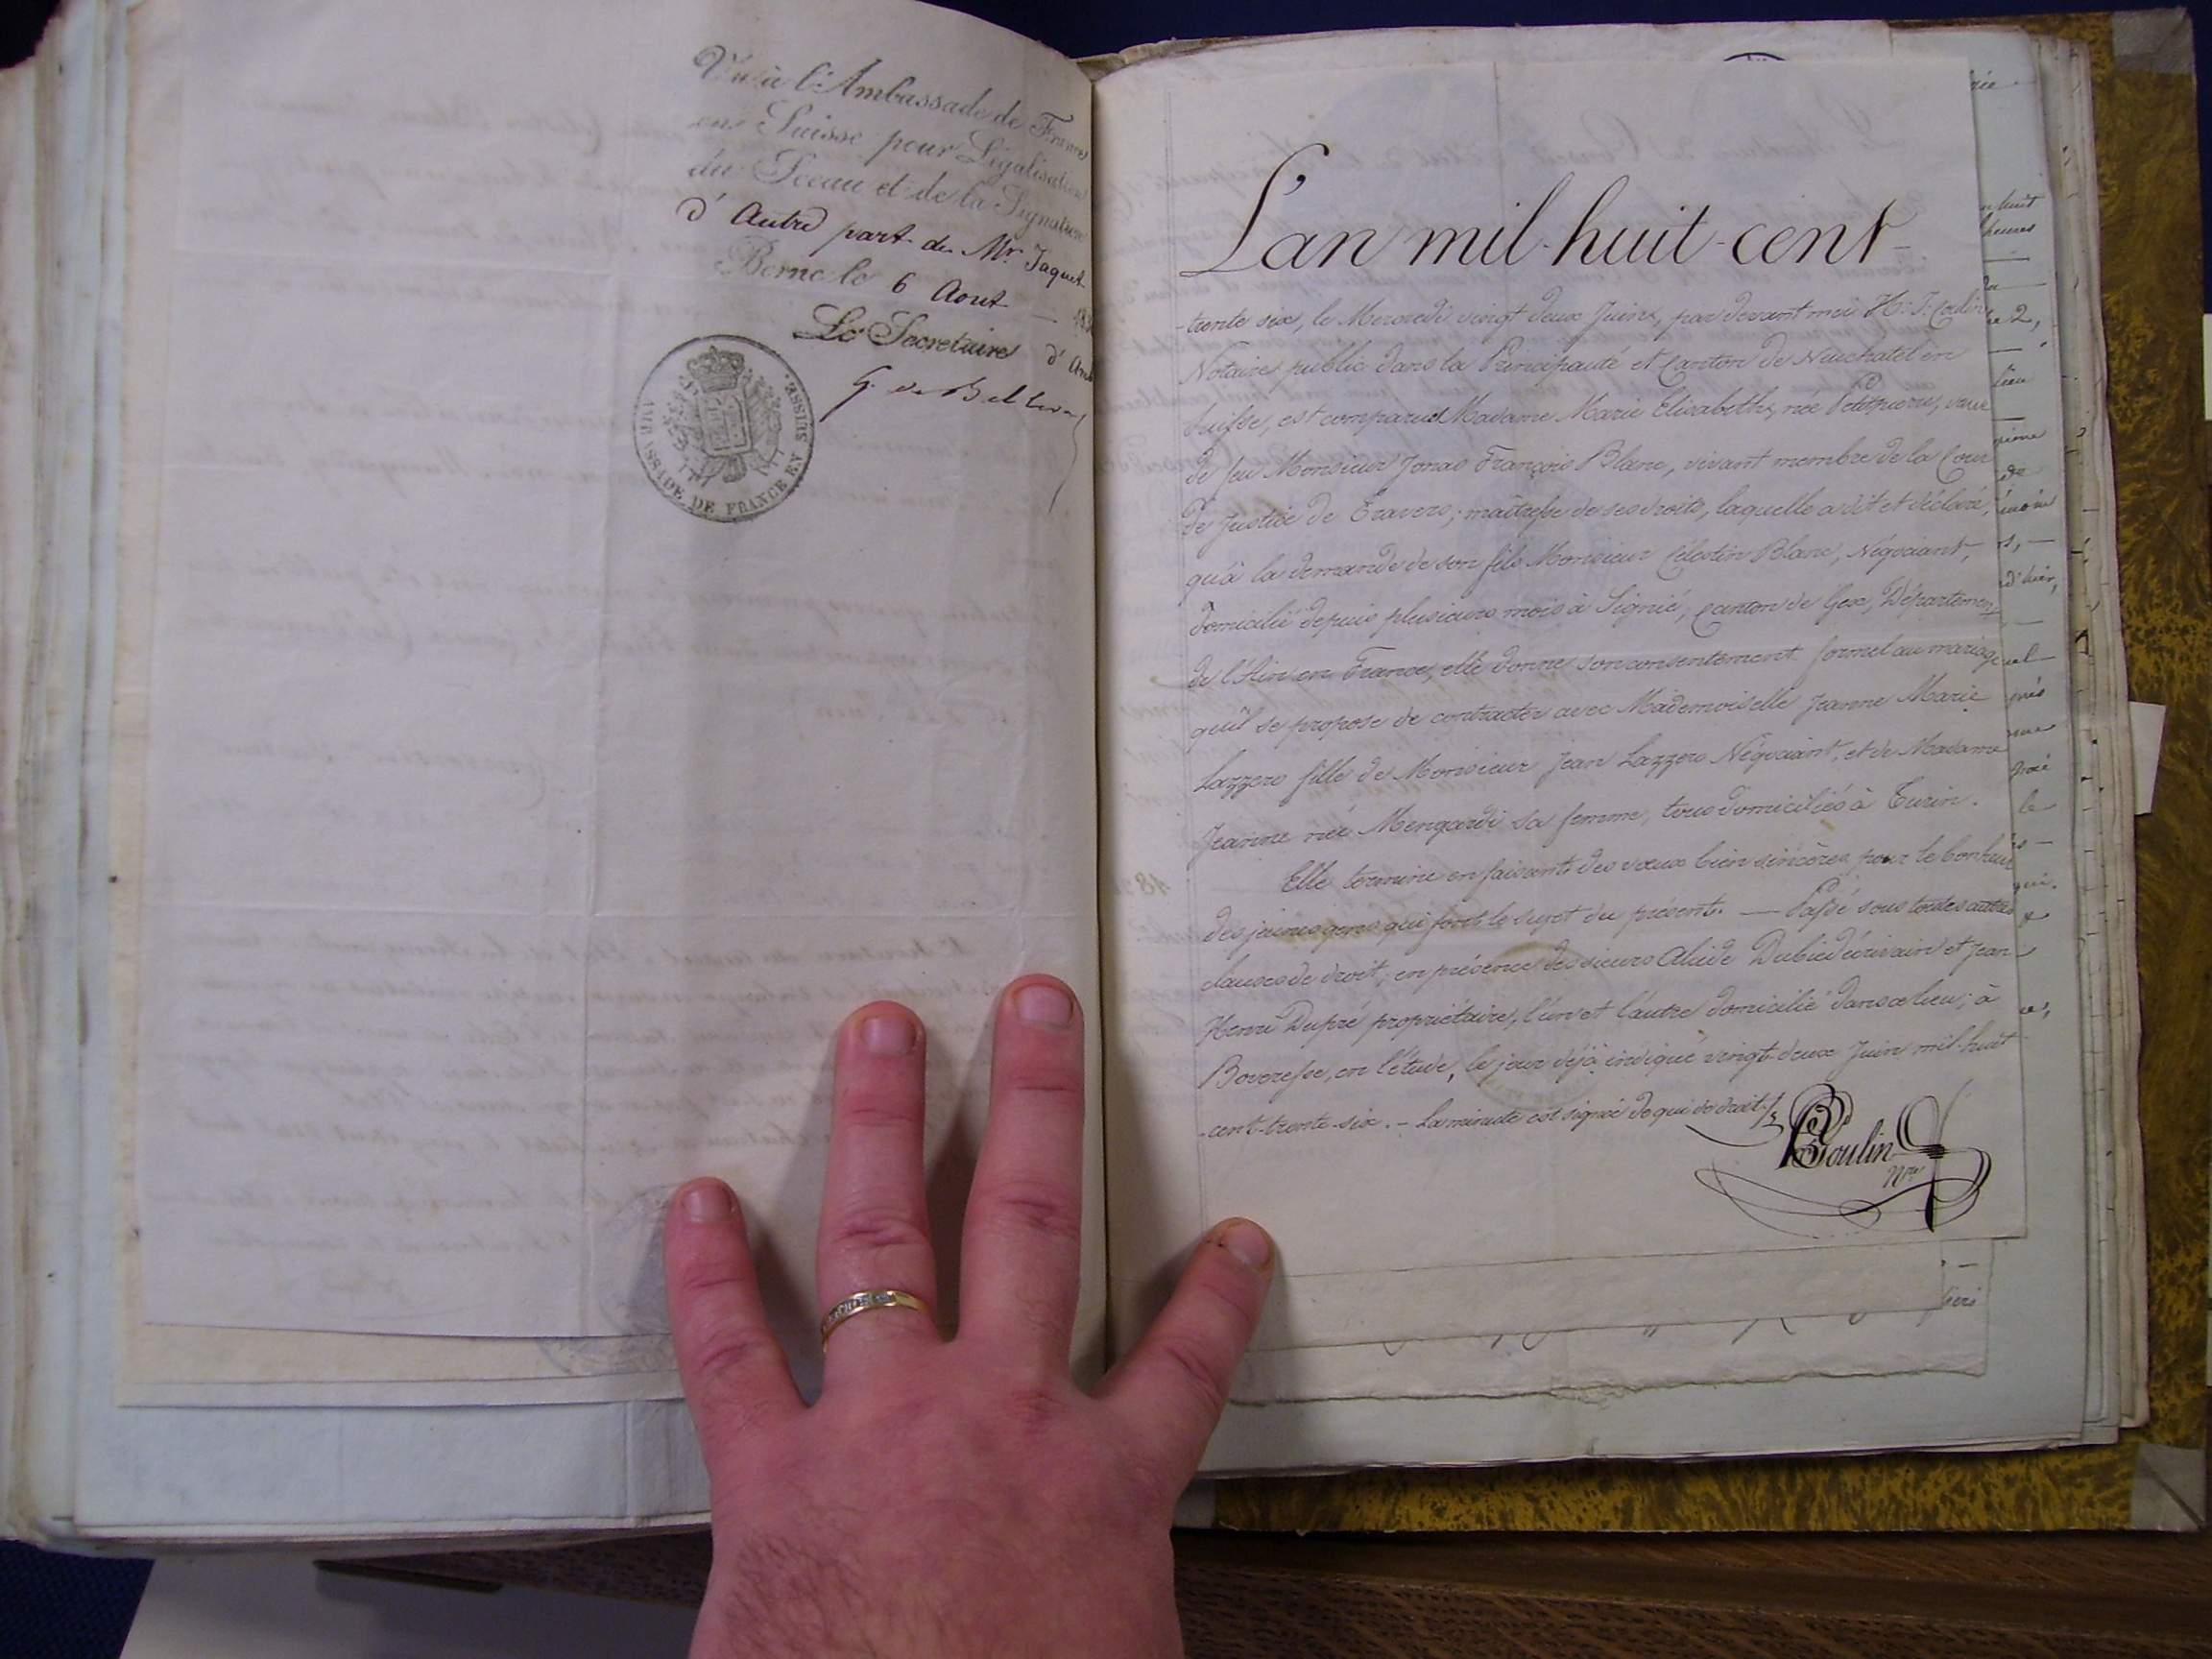 Vu à l'Ambassade de France
en Suisse pour Légalisation
du Sceau et de la Signature
d'Autre part de Mr. Jaquet
Berne le 6 Aout — 183
Le Secretaire d'Am
G. de
AMBASSADE DE FRANCE EN SUISSE.
L'an mil-huit-cent-
-trente six, le Mercredi vingt deux Juin, par devant moi H: F: Coulin
Notaire public dans la Principauté et Canton de Neuchatel en
Suisse, est comparue Madame Marie Elisabeth, née Petitpierre, veuve
de feu Monsieur Jonas François Blanc, vivant membre de la Cour
de Justice de Travers; maîtresse de ses droits, laquelle a dit et déclaré,
qu'à la demande de son fils Monsieur Célestin Blanc, Négociant,
domicilié depuis plusieurs mois à Signié, Canton de Gex, Département
de l'Ain en France, elle donne son consentement formel au mariage
qu'il se propose de contracter avec Mademoiselle Jeanne Marie
Lazzero fille de Monsieur Jean Lazzero Négociant, et de Madame
Jeanne née Mengardi sa femme, tous domiciliés à Turin.
Elle termine en faisant des vœux bien sincères pour le bonheur
des jeunes gens qui font le sujet du présent. — Passé sous toutes autres
clauses de droit; en présence des sieurs Alcide Dubied écrivain et Jean
Henri Dupré propriétaire, l'un et l'autre domicilié dans ce lieu; à
Boveresse, en l'étude, le jour déjà indiqué vingt-deux Juin mil-huit
-cent-trente-six. - La minute est signée de qui de droit.
Coulin
Nre